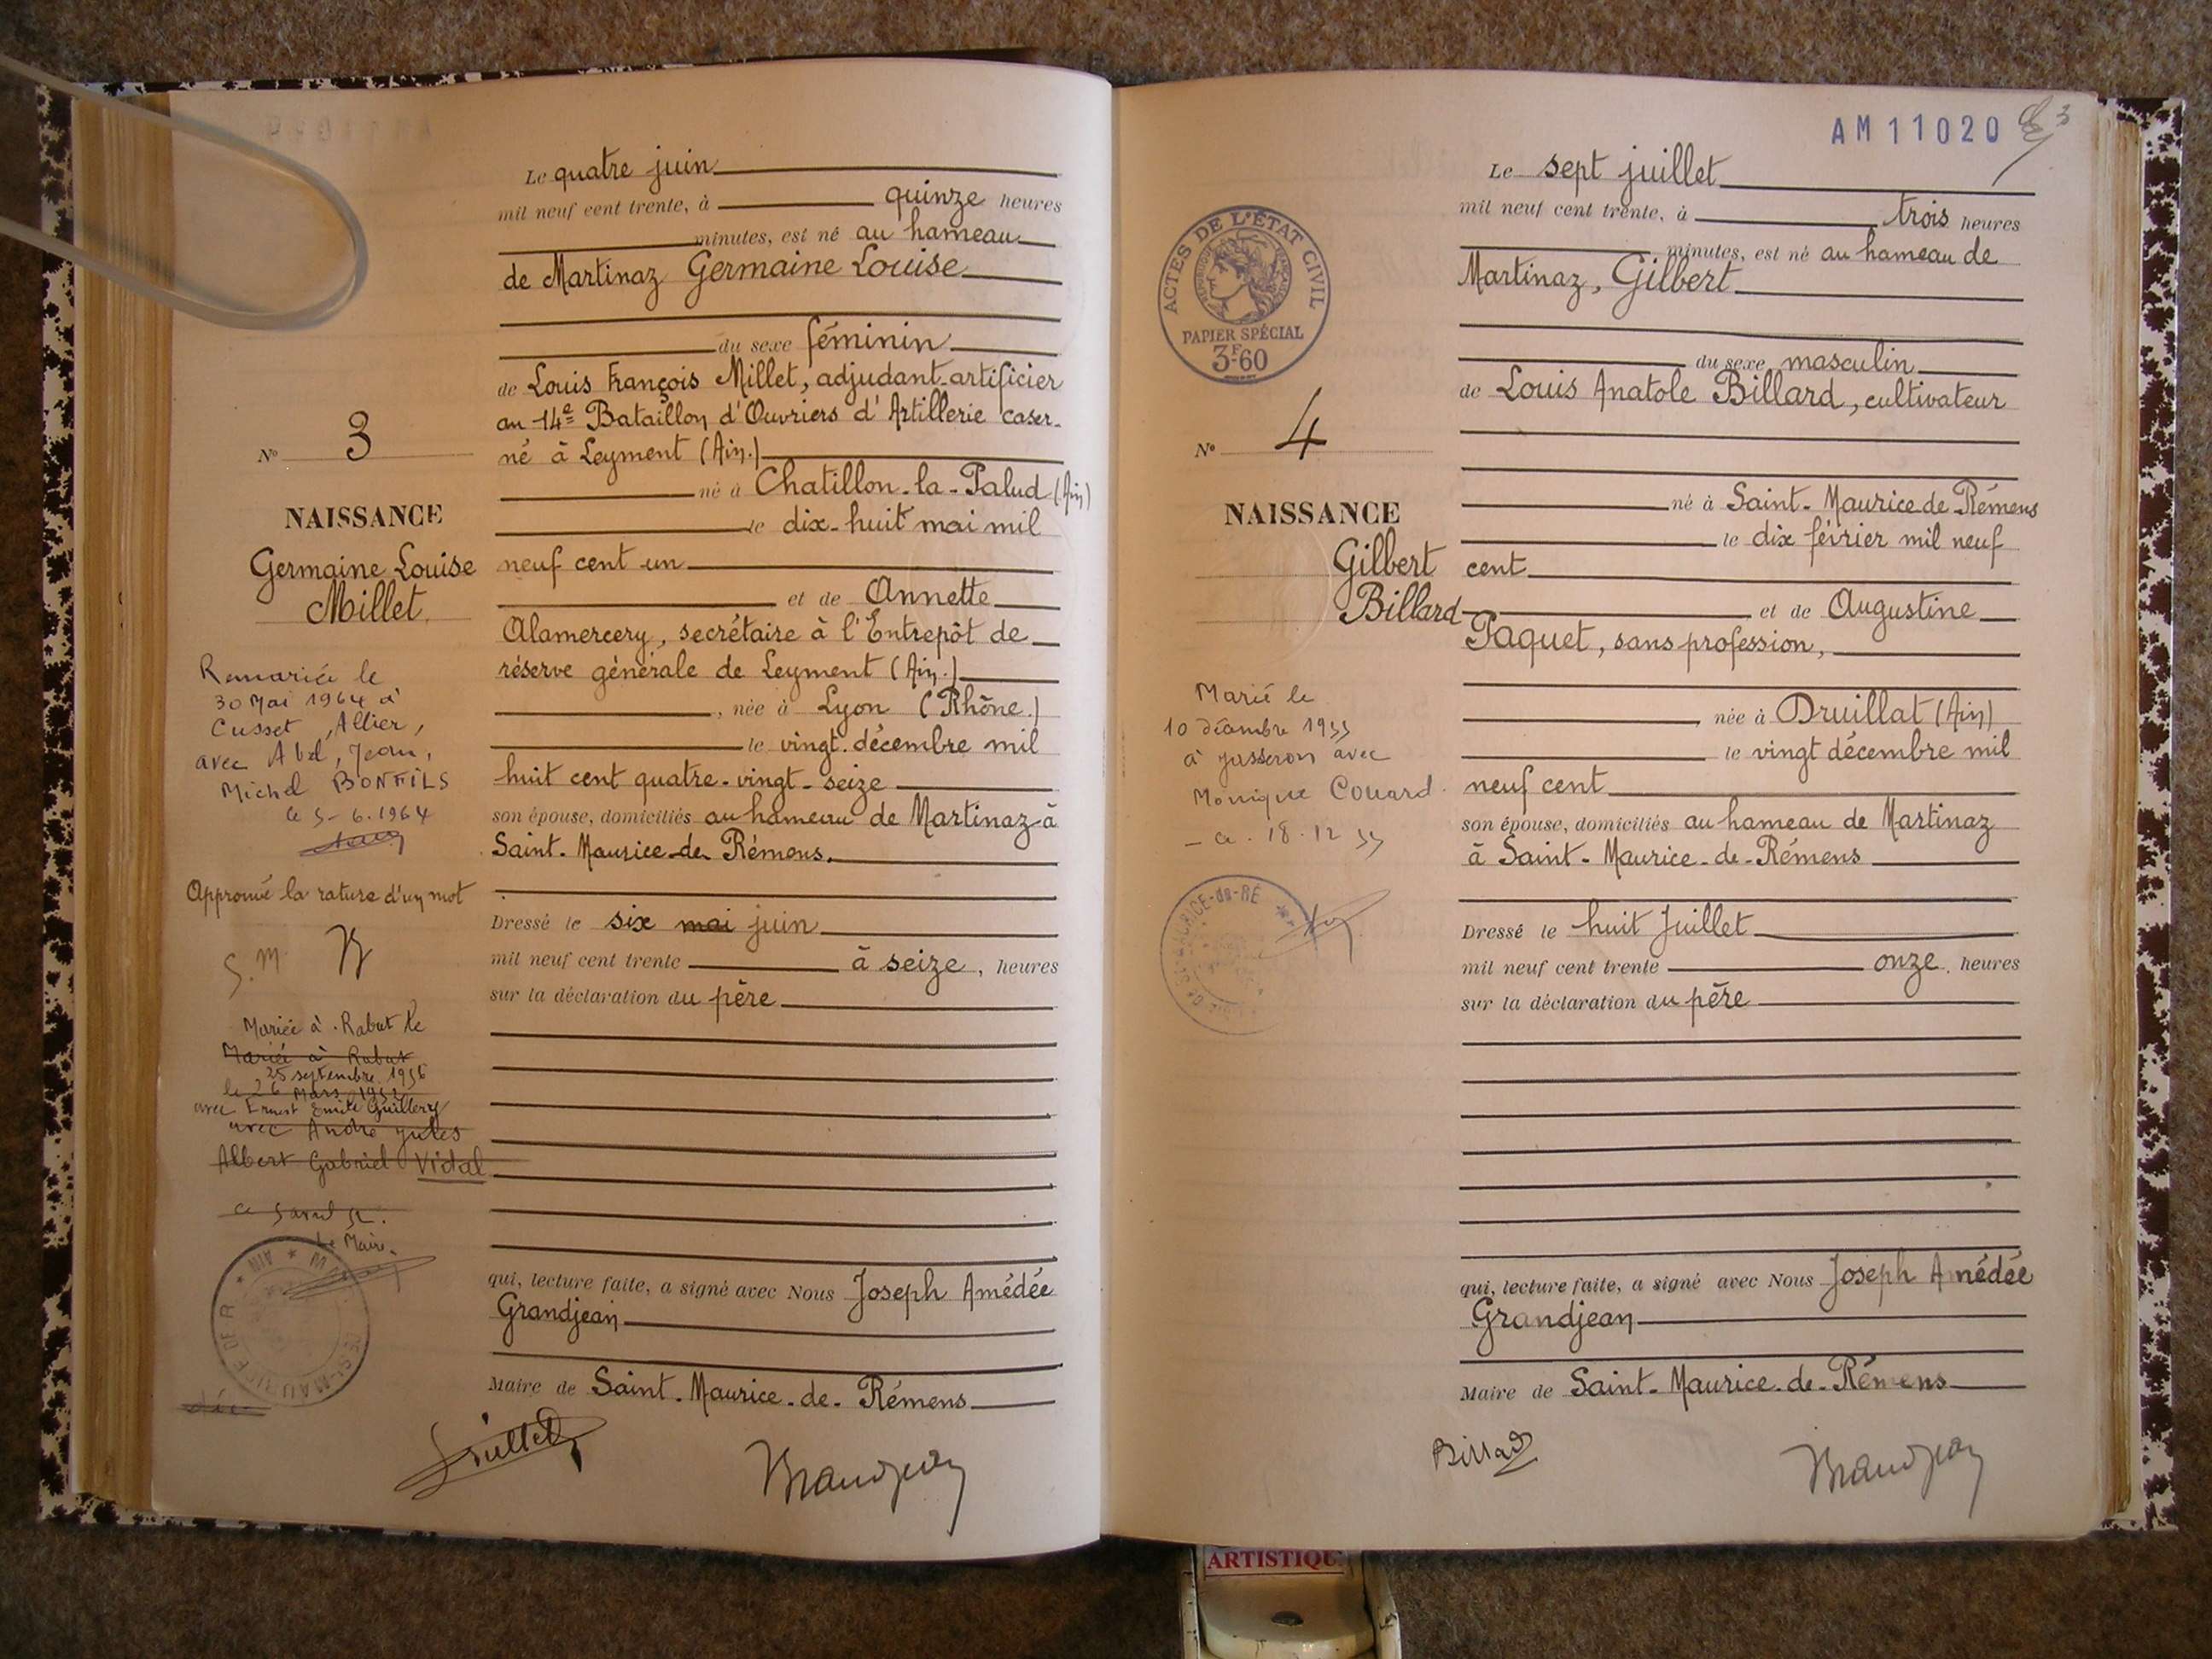 Le quatre juin
mil neuf cent trente, à quinze heures
minutes, est né au hameau
de Martinaz Germaine Louise
du sexe féminin
de Louis François Millet, adjudant-artificier
au 14e Bataillon d'Ouvriers d'Artillerie caser-
né à Leyment (Ain.)
né à Chatillon-la-Palud (Ain)
le dix-huit mai mil
neuf cent un
et de Annette
Alamercery, secrétaire à l'Entrepôt de
réserve générale de Leyment (Ain.)
, née à Lyon (Rhône.)
le vingt décembre mil
huit cent quatre-vingt-seize
son épouse, domiciliés au hameau de Martinaz à
Saint-Maurice-de Rémens.
Dressé le six mai juin
mil neuf cent trente à seize, heures
sur la déclaration du père
qui, lecture faite, a signé avec Nous Joseph Amédée
Grandjean
Maire de Saint-Maurice-de-Rémens
Millet
Grandjean
N° 3
NAISSANCE
Germaine Louise
Millet.
Remariée le
30 Mai 1964 à
Cusset, Allier,
avec Abel, Jean,
Michel BONFILS
le 5-6.1964
Approuvé la rature d'un mot
Mariée à Rabat le
Mariée à Rabat
25 septembre 1956
le 26 Mars 1952
avec Ernest Emile Guillery
avec André Jules
Albert Gabriel Vidal
Le Maire
AM11020
3
Le sept juillet
mil neuf cent trente, à trois heures
minutes, est né au hameau de
Martinaz, Gilbert
du sexe masculin
de Louis Anatole Billard, cultivateur
né à Saint-Maurice de Rémens
le dix février mil neuf
cent
et de Augustine
Paquet, sans profession,
née à Druillat (Ain)
le vingt décembre mil
neuf cent
son épouse, domiciliés au hameau de Martinaz
à Saint-Maurice-de-Rémens
Dressé le huit Juillet
mil neuf cent trente onze heures
sur la déclaration du père
qui, lecture faite, a signé avec Nous Joseph Amédée
Grandjean
Maire de Saint-Maurice-de-Rémens
Billard
Grandjean
ACTES DE L'ÉTAT CIVIL
PAPIER SPÉCIAL
3F60
N° 4
NAISSANCE
Gilbert
Billard
Marié le
10 décembre 1955
à Jasseron avec
Monique Couard.
- ce 18.12 55
ARTISTIQU